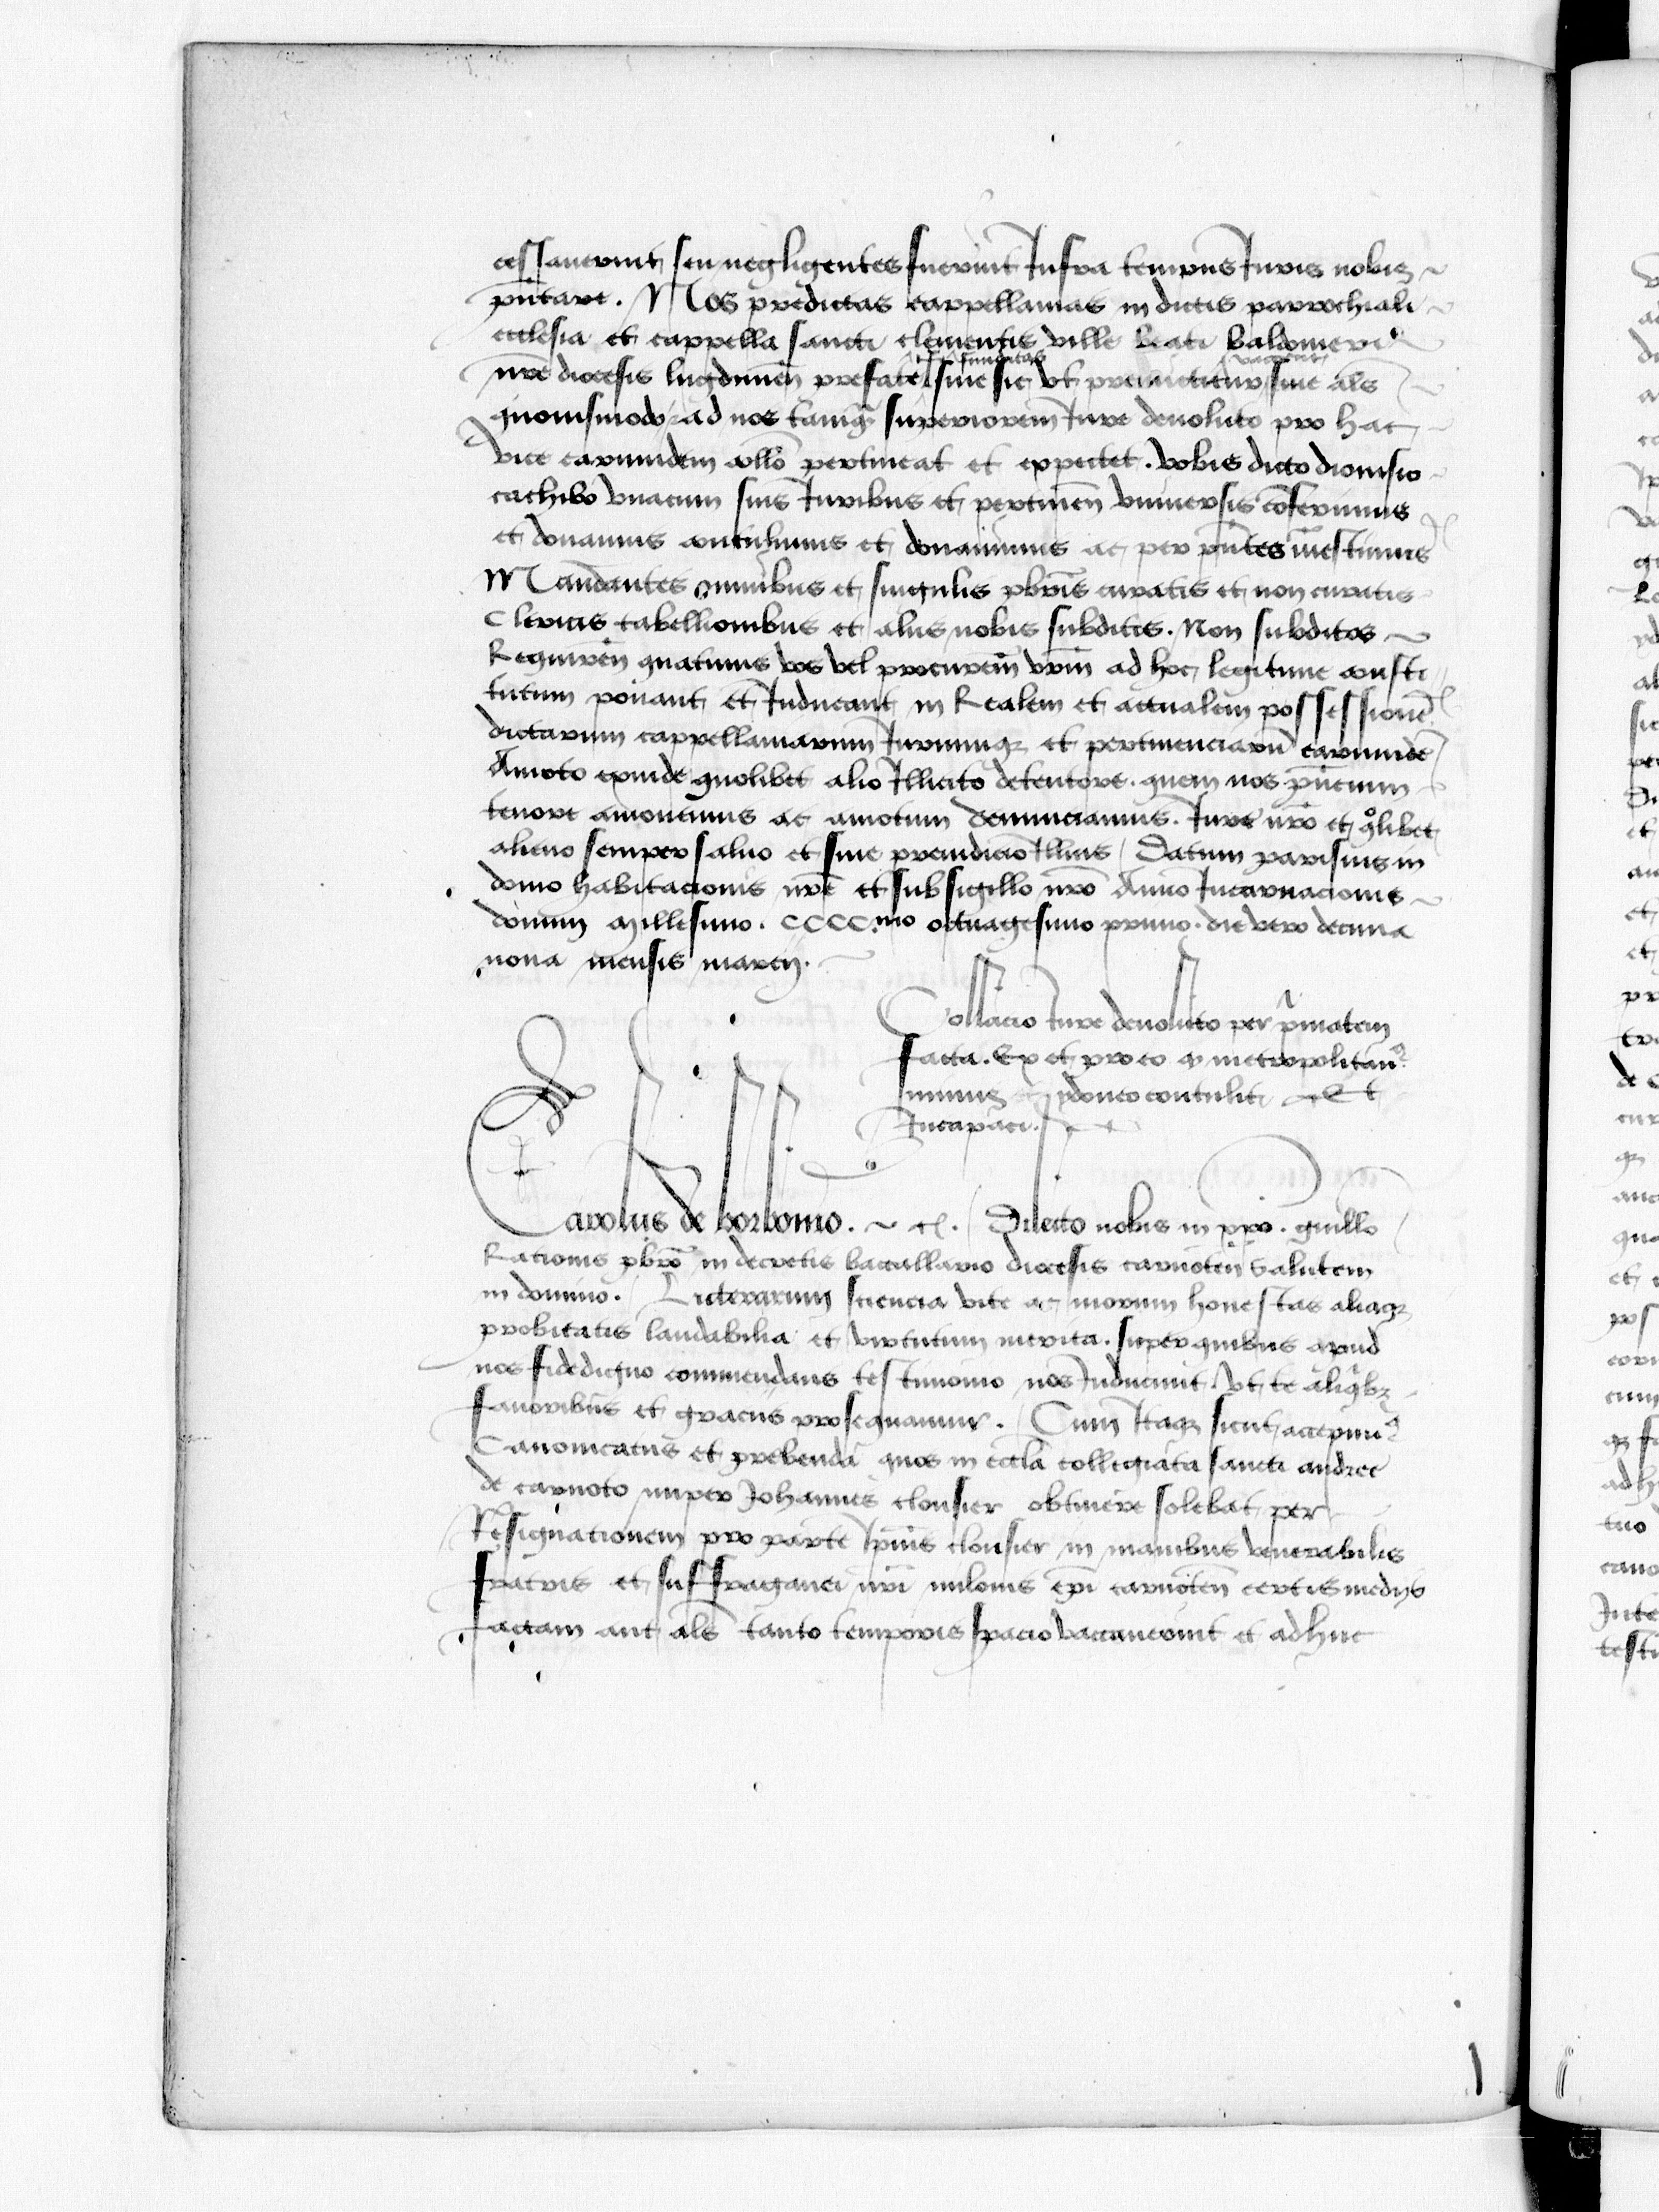 cessaverint seu negligentes fuerint Infra tempus Iuris nobis
pñtare. Nos predictas cappellanias in dictis parrochiali
ecclesia et cappella sancti clementis ville beati baldomeri
nr̃e diocesis lugdunen̄ prefate fundatas siue sic vt premittitur vaccent siue al̃s
quouismodo ad nos tanq̃ superiorem Iure deuoluto pro hac
vice earumdem coll̃o pertineat et expectet. vobis dicto dionisio
cathibo vnacum suis Iuribus et pertinen̄ vniuersis cōferimus
et donamus contulimus et donauimus ac per pñtes inuestimus
Mandantes omnibus et singulis pbr̃is curatis et non curatis
Clericis tabellionibus et aliis nobis subditis. Non subditos
Requiren̄ quatinus vos vel procurem̄ vr̃m ad hoc legitime consti
tutum ponant et Inducant in Realem et actualem possessionē
dictarum cappellaniarum Iuriumqz et pertinenciarū earumdē
Amoto exinde quolibet alio Illicito detentore. quem nos pñcium
tenore amouemus ac amotum denunciamus. Iure nr̃o et qolibet
alieno semper saluo et sine preiudicio Illius / Datum parisius in
domo habitacionis nr̃e et sub sigillo nr̃o Anno Incarnacionis
domini Millesimo. CCCC.mo octuagesimo primo. die vero decima
nona mensis marcij.
Collacio Iure deuoluto per pimatem
facta. Ex et pro eo qz metropolitan9
minus ydoneo contulit Et
Incapaci.
Carolus de borbonio. etc. / Dilecto nobis in xpo. guill̃o
Rationis pbr̃o in decretis baccallario diocesis carnoten̄ Salutem
in domino. / Litterarum sciencia vite ac morum honestas aliaqz
probitatis laudabilia et virtutum merita. super quibus apud
nos fidedigno commendaris testimonio nos Inducunt. vt te aliqibz
fauoribus et graciis prosequamur. / Cum Itaqz sicut accepim9
Canonicatus et prebenda quos in eccl̃a collegiata sancti andree
de carnoto nuper Johannes clousier obtinere solebat per
Resignationem pro parte Ip̃ius clousier in manibus venerabilis
fratris et suffraganei nr̃i milonis ep̃i carnoten̄ certis medijs
factam aut al̃s tanto temporis spacio vaccauerint et adhuc